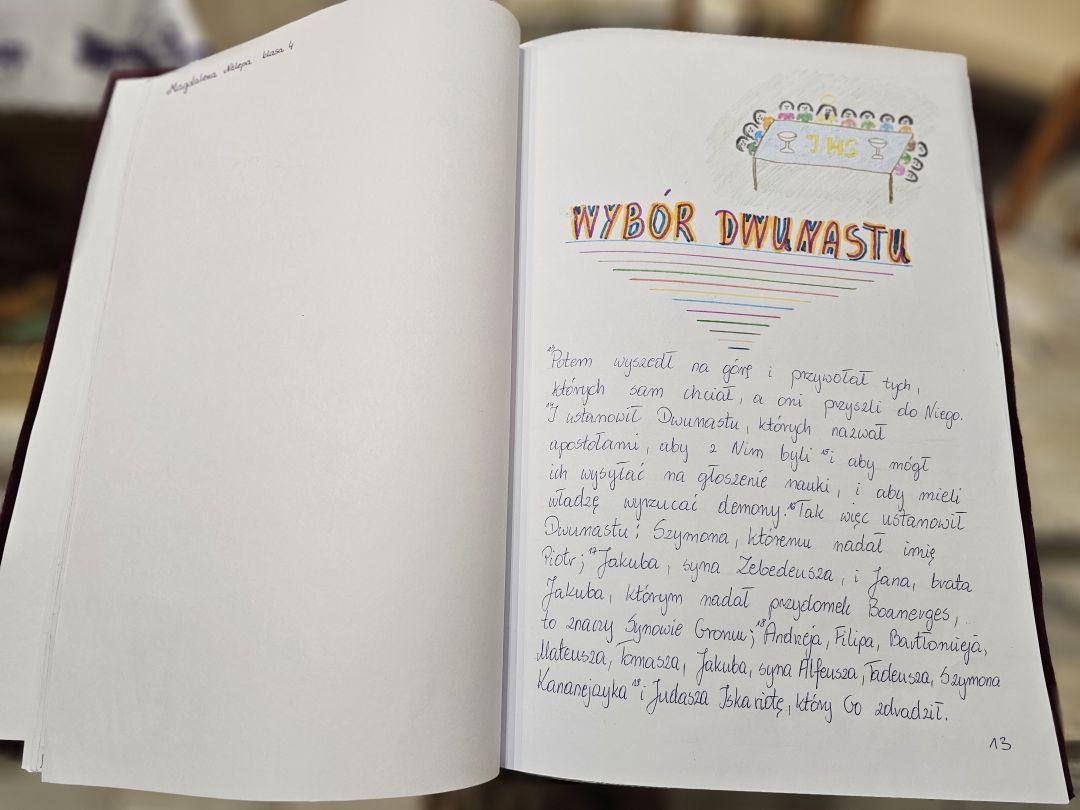 Magdalena Nalepa klasa 4
JHS
WYBÓR DWUNASTU
¹³Potem wyszedł na górę i przywołał tych,
których sam chciał, a oni przyszli do Niego.
¹⁴I ustanowił Dwunastu, których nazwał
apostołami, aby z Nim byli ¹⁵i aby mógł
ich wysyłać na głoszenie nauki, i aby mieli
władzę wyrzucać demony. ¹⁶Tak więc ustanowił
Dwunastu: Szymona, któremu nadał imię
Piotr; ¹⁷Jakuba, syna Zebedeusza, i Jana, brata
Jakuba, którym nadał przydomek Boanerges,
to znaczy Synowie Gromu; ¹⁸Andrzeja, Filipa, Bartłomieja,
Mateusza, Tomasza, Jakuba, syna Alfeusza, Tadeusza, Szymona
Kananejczyka ¹⁹i Judasza Iskariotę, który Go zdradził.
13